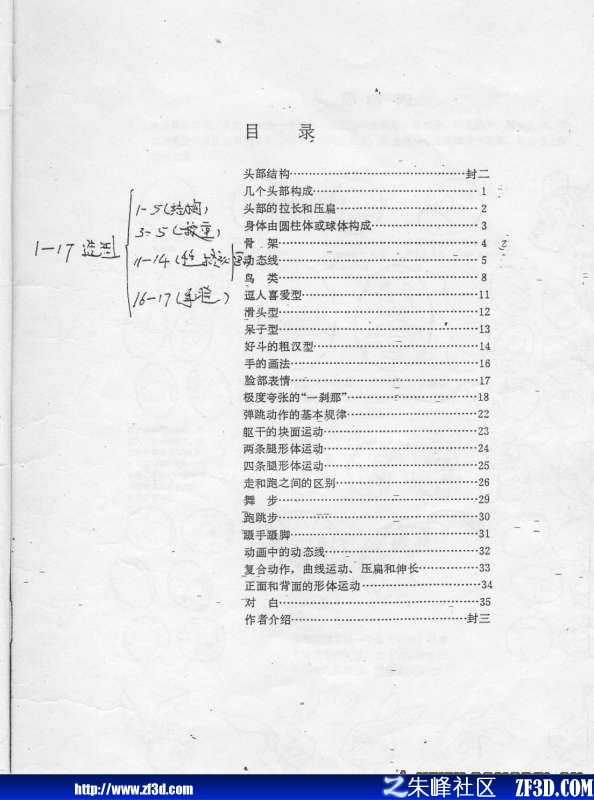 目 录
头部结构……封二
几个头部构成……1
头部的拉长和压扁……2
身体由圆柱体或球体构成……3
骨 架……4
动态线……5
鸟 类……8
逗人喜爱型……11
滑头型……12
呆子型……13
好斗的粗汉型……14
手的画法……16
脸部表情……17
极度夸张的“一刹那”……18
弹跳动作的基本规律……22
躯干的块面运动……23
两条腿形体运动……24
四条腿形体运动……25
走和跑之间的区别……26
舞 步……29
跑跳步……30
蹑手蹑脚……31
动画中的动态线……32
复合动作，曲线运动、压扁和伸长……33
正面和背面的形体运动……34
对 白……35
作者介绍……封三
1-17 造型
1-5(结构)
3-5
11-14
16-17
http://www.zf3d.com
朱峰社区 ZF3D.COM